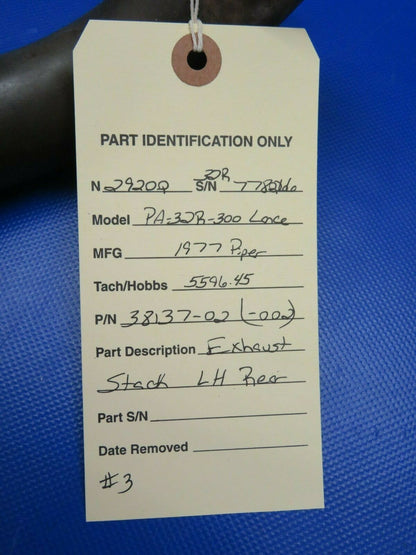 PART IDENTIFICATION ONLY
N 2920Q S/N 32R
Model PA-32R-300 Lance
MFG 1977 Piper
Tach/Hobbs 5596.45
P/N 38137-02 (-002)
Part Description Exhaust
Stack LH Rear
Part S/N
Date Removed
#3